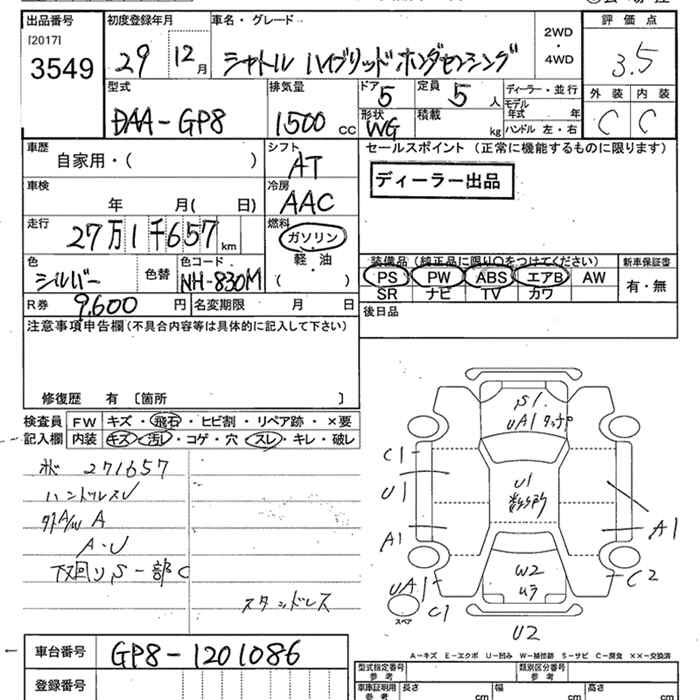 出品番号
[2017]
3549
初度登録年月
29 12月
車名・グレード
シャトル ハイブリッド ホンダセンシング
2WD
・
4WD
評価点
3.5
外装 内装
C C
型式
DAA-GP8
排気量
1500 cc
ドア
5
定員
5 人
形状
WG
積載
kg
ディーラー・並行
モデル
年式 年
ハンドル 左・右
車歴
自家用・( )
シフト
AT
車検
年 月( 日)
冷房
AAC
走行
27万1千657 km
燃料
ガソリン
軽・油
( )
色
シルバー
色替
色コード
NH-830M
R券
9,600 円
名変期限 月 日
セールスポイント (正常に機能するものに限ります)
ディーラー出品
装備品 (純正品に限り○をつけてください)
PS PW ABS エアB AW
SR ナビ TV カワ
新車保証書
有・無
後日品
注意事項申告欄(不具合内容等は具体的に記入して下さい)
修復歴 有 〔箇所 〕
検査員
記入欄
FW キズ・飛石・ヒビ割・リペア跡・×要
内装 キズ・汚レ・コゲ・穴・スレ・キレ・破レ
271657
ハンドルスレ
外A/W A
A-U
下回りS一部C
スタンドレス
S1
UA1 タッチP
C1
U1
U1
数ヶ所
A1
A1
UA1
C1
C2
W2
U2
スペア
A-キズ E-エクボ U-凹み W-補修跡 S-サビ C-腐食 ××-交換済
車台番号
GP8-1201086
登録番号
型式指定番号
参考
類別区分番号
参考
車庫証明用
参考
長さ cm
幅 cm
高さ cm